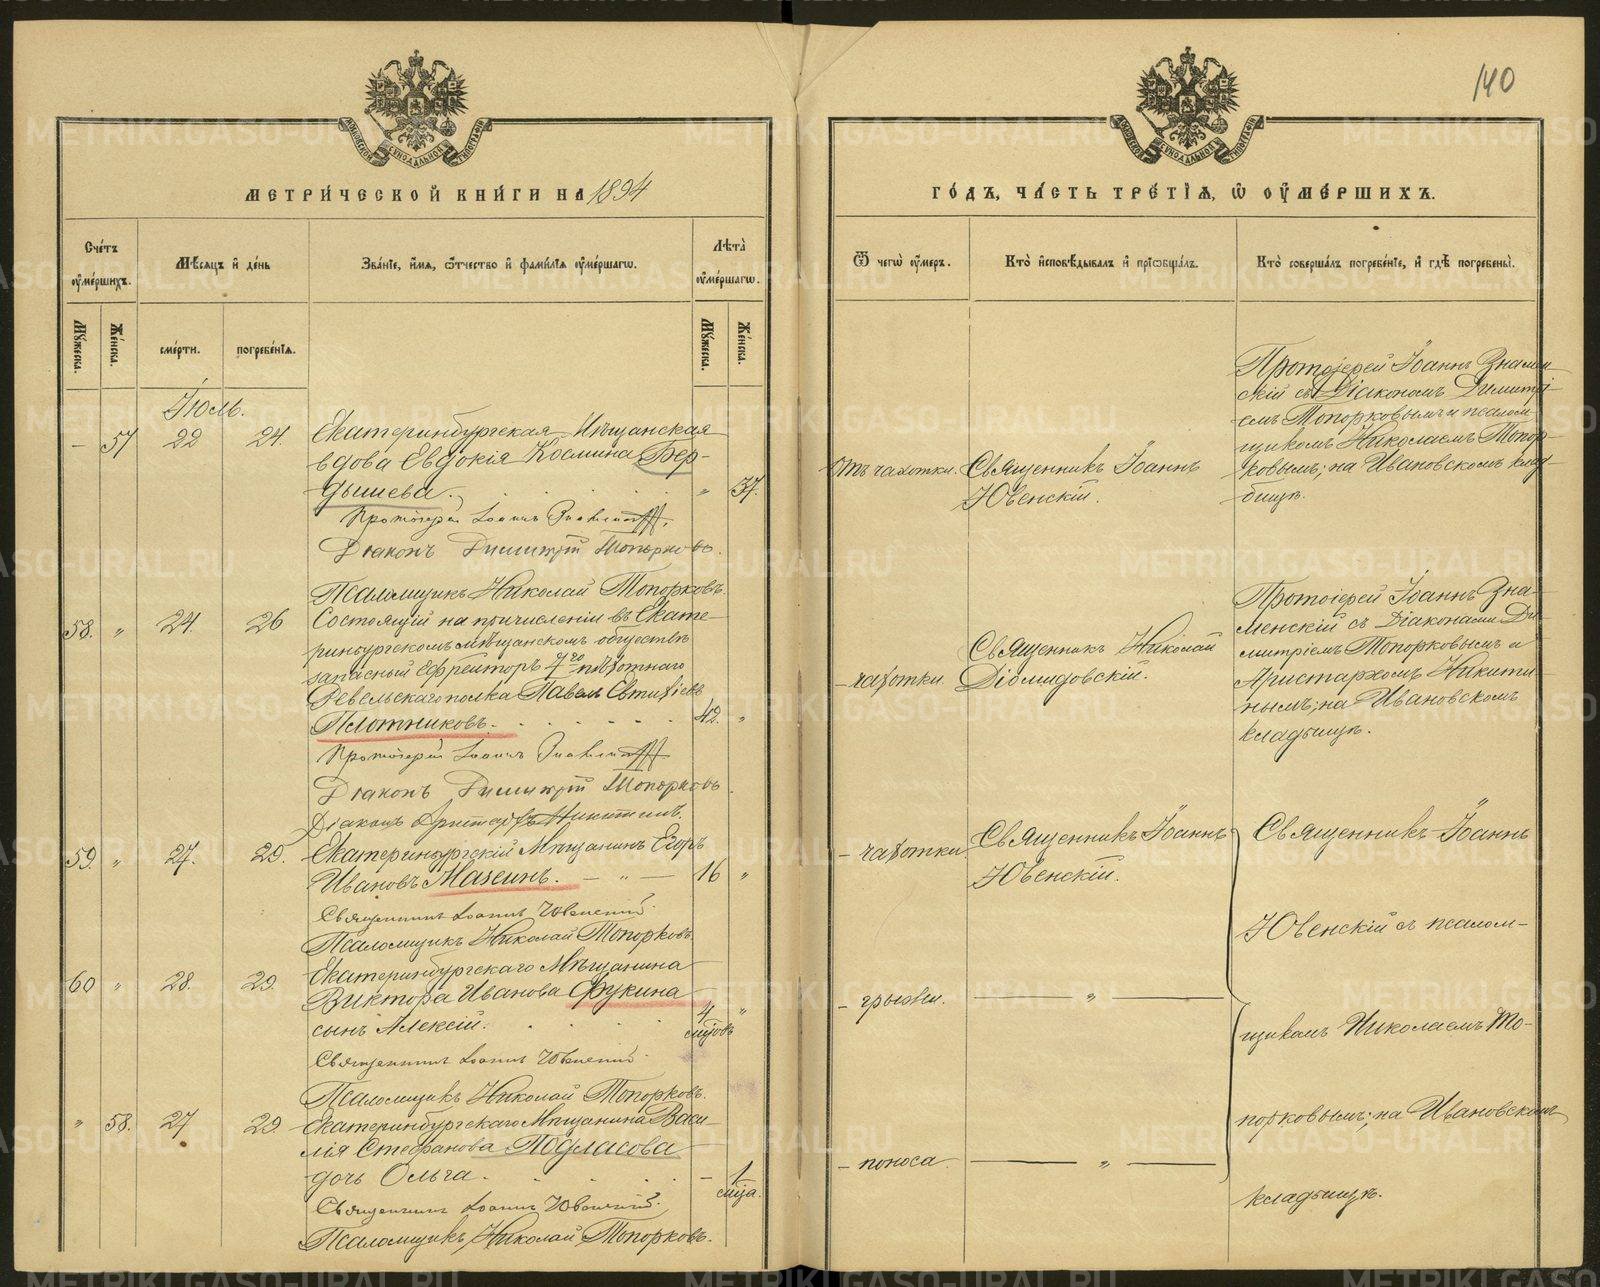 140
МЕТРИЧЕСКОЙ КНИГИ НА 1894
Счетъ умершихъ.
Мѣсяцъ и день
Званіе, имя, отчество и фамилія умершаго.
Лѣта умершаго.
Мужеска.
Женска.
смерти.
погребенія.
Мужеска.
Женска.
Іюль.
– 57 22 24. Екатеринбургская Мѣщанская
вдова Евдокія Космина Бер-
дышева. „ 37.
Протоіерей Іоаннъ
Діаконъ Димитрій Топорковъ.
Псаломщикъ Николай Топорковъ.
58. „ 24. 26 Состоящій на причисленіи въ Екате-
ринбургскомъ мѣщанскомъ обществѣ
запасный Ефрейторъ 7го пѣхотнаго
Ревельскаго полка Павелъ Евтихіевъ
Плотниковъ. 42. „
Протоіерей Іоаннъ
Діаконъ Димитрій Топорковъ
Діаконъ Аристархъ Никитинъ.
59. „ 27. 29. Екатеринбургскій Мѣщанинъ Егоръ
Ивановъ Мазеинъ. — „ — 16 „
Священникъ Іоаннъ Ювенскій.
Псаломщикъ Николай Топорковъ.
60 „ 28. 29. Екатеринбургскаго Мѣщанина
Виктора Иванова Фукина
сынъ Алексій. 4 мѣсяцовъ „
Священникъ Іоаннъ Ювенскій.
Псаломщикъ Николай Топорковъ.
„ 58. 27 29. Екатеринбургскаго Мѣщанина Васи-
лія Стефанова Подласова
дочь Ольга. – 1 мѣсяца.
Священникъ Іоаннъ Ювенскій.
Псаломщикъ Николай Топорковъ.
ГОДЪ, ЧАСТЬ ТРЕТІЯ, Ѡ ОУМЕРШИХЪ.
Ѿ чего умеръ.
Кто исповѣдывалъ и пріобщалъ.
Кто совершалъ погребеніе, и гдѣ погребены.
Отъ чахотки.
Священникъ Іоаннъ
Ювенскій.
Протоіерей Іоаннъ Знамен-
скій съ Діакономъ Димитрі-
емъ Топорковымъ и псалом-
щикомъ Николаемъ Топор-
ковымъ; на Ивановскомъ клад-
бищѣ.
– чахотки.
Священникъ Николай
Діомидовскій.
Протоіерей Іоаннъ Зна-
менскій съ Діаконами Ди-
митріемъ Топорковымъ и
Аристархомъ Никити-
нымъ; на Ивановскомъ
кладбищѣ.
– чахотки
Священникъ Іоаннъ
Ювенскій.
Священникъ Іоаннъ
Ювенскій съ псалом-
– грыжи. — „ —
щикомъ Николаемъ То-
порковымъ; на Ивановскомъ
– поноса. — „ —
кладбищѣ.
METRIKI.GASO-URAL.RU